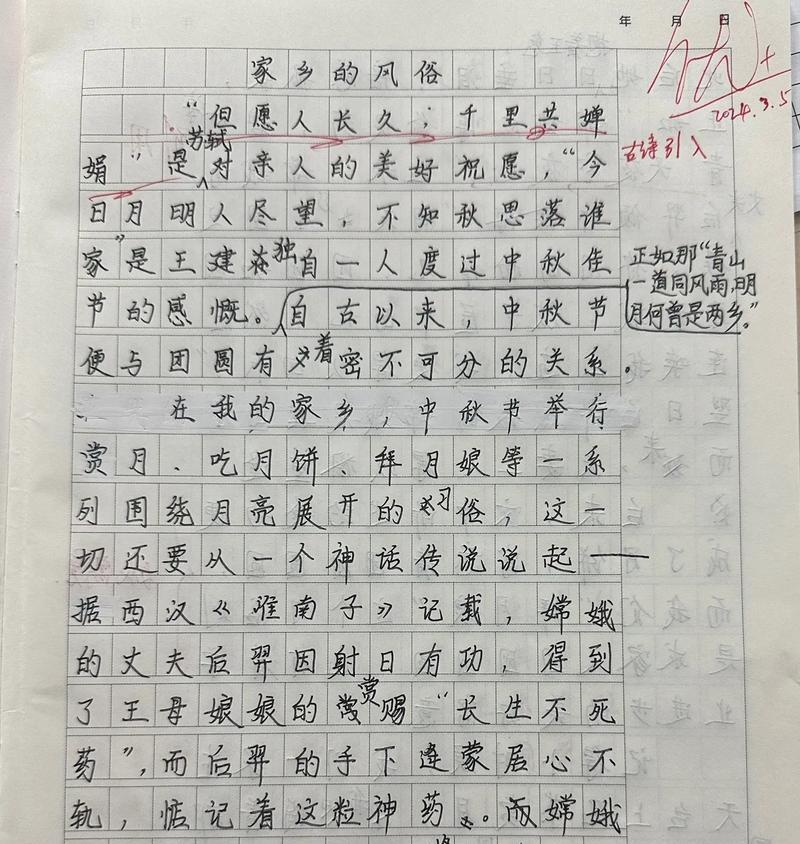 年 月 日
优+
2024.3.5
家乡的风俗
“但愿人长久，千里共婵
古诗引入
苏轼
娟”是对亲人的美好祝愿，“今
日月明人尽望，不知秋思落谁
家”是王建在独自一人度过中秋佳
正如那“青山
一道同风雨，明
月何曾是两乡。”
节的感慨。自古以来，中秋节
便与团圆有着密不可分的关系。
在我的家乡，中秋节举行
赏月、吃月饼、拜月娘等一系
列围绕月亮展开的习俗，这一
切还要从一个神话传说说起——
据西汉《淮南子》记载，嫦娥
的丈夫后羿因射日有功，得到
了王母娘娘的赏赐“长生不死
药”，而后羿的手下逄蒙居心不
轨，惦记着这粒神药。而嫦娥